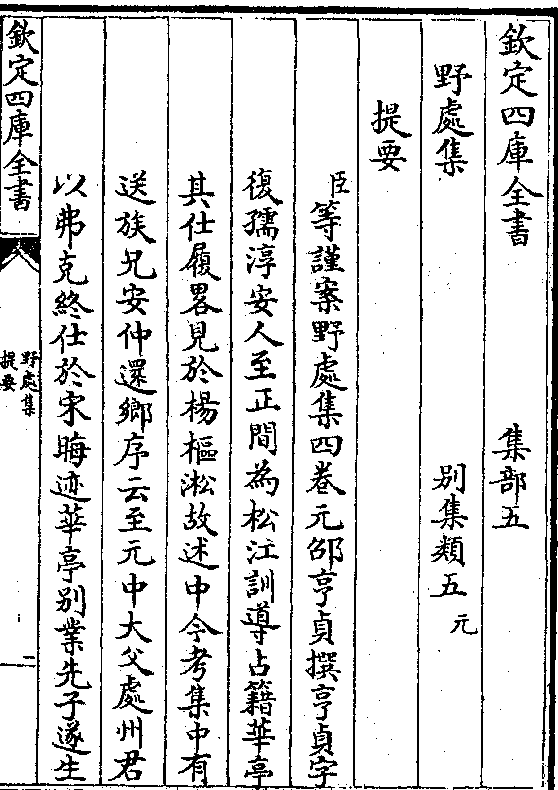 欽定四庫全書　集部五
野處集　別集類五元
提要
臣等謹案野處集四卷元邵亨貞撰亨貞字
復孺淳安人至正間為松江訓導占籍華亭
其仕履畧見於楊樞淞故述中今考集中有
送族兄安仲還鄉序云至元中大父處州君
以弗克終仕於宋晦迹華亭別業先子遂生
欽定四庫全書
野處集
提要
一